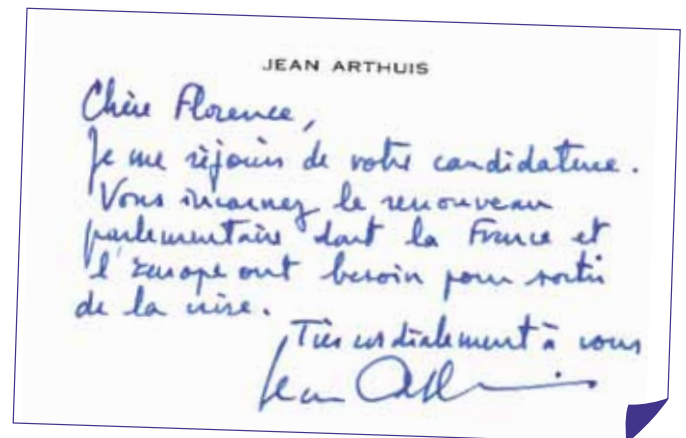 JEAN ARTHUIS
Chère Florence,
Je me réjouis de votre candidature.
Vous incarnez le renouveau
parlementaire dont la France et
l'Europe ont besoin pour sortir
de la crise.
Très cordialement à vous
Jean Arthuis